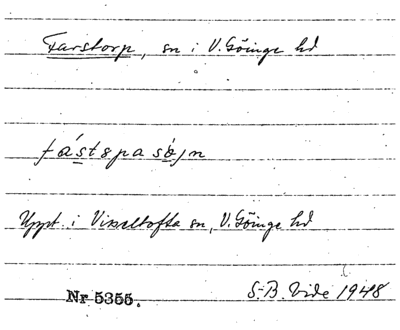 Farstorp, sn i V. Göinge hd
fástspasǿjn
Uppt. i Visseltofta sn, V. Göinge hd
Nr 5355.
S-B. Vide 1948